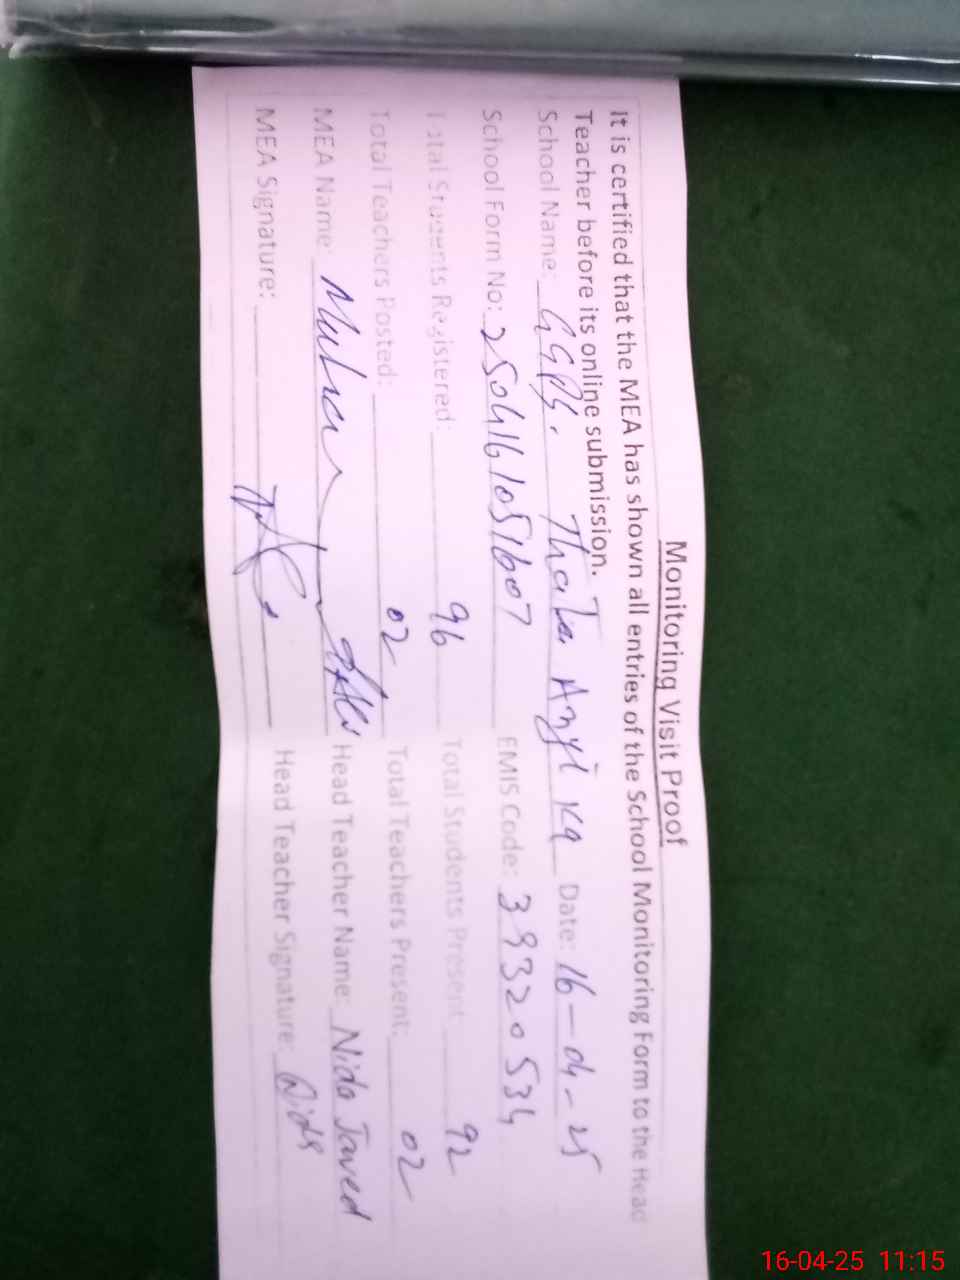 Monitoring Visit Proof
It is certified that the MEA has shown all entries of the School Monitoring Form to the Head
Teacher before its online submission.
School Name: GGPS. Thatta Azyt Ka Date: 16-04-25
School Form No: 2504161051607 EMIS Code: 39320534
Total Students Registered: 96 Total Students Present 92
Total Teachers Posted: 02 Total Teachers Present: 02
MEA Name: Head Teacher Name: Nida Javed
MEA Signature: Head Teacher Signature: Nida
16-04-25 11:15